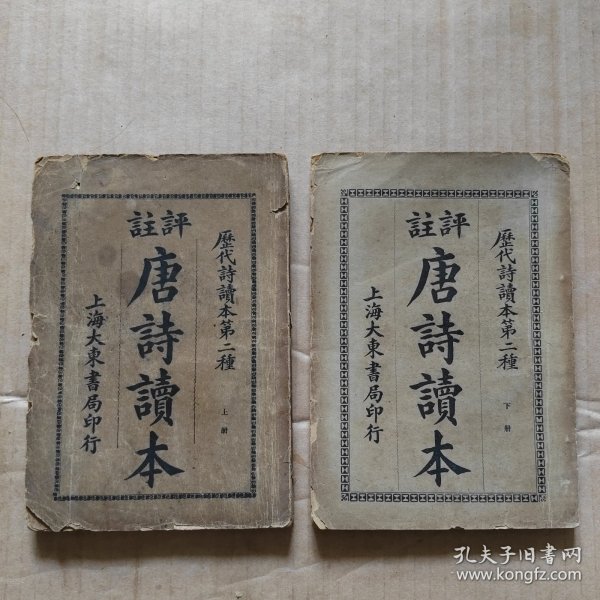 歷代詩讀本第二種
上册
評註
唐詩讀本
上海大東書局印行
歷代詩讀本第二種
下册
評註
唐詩讀本
上海大東書局印行
孔夫子旧书网
www.kongfz.com